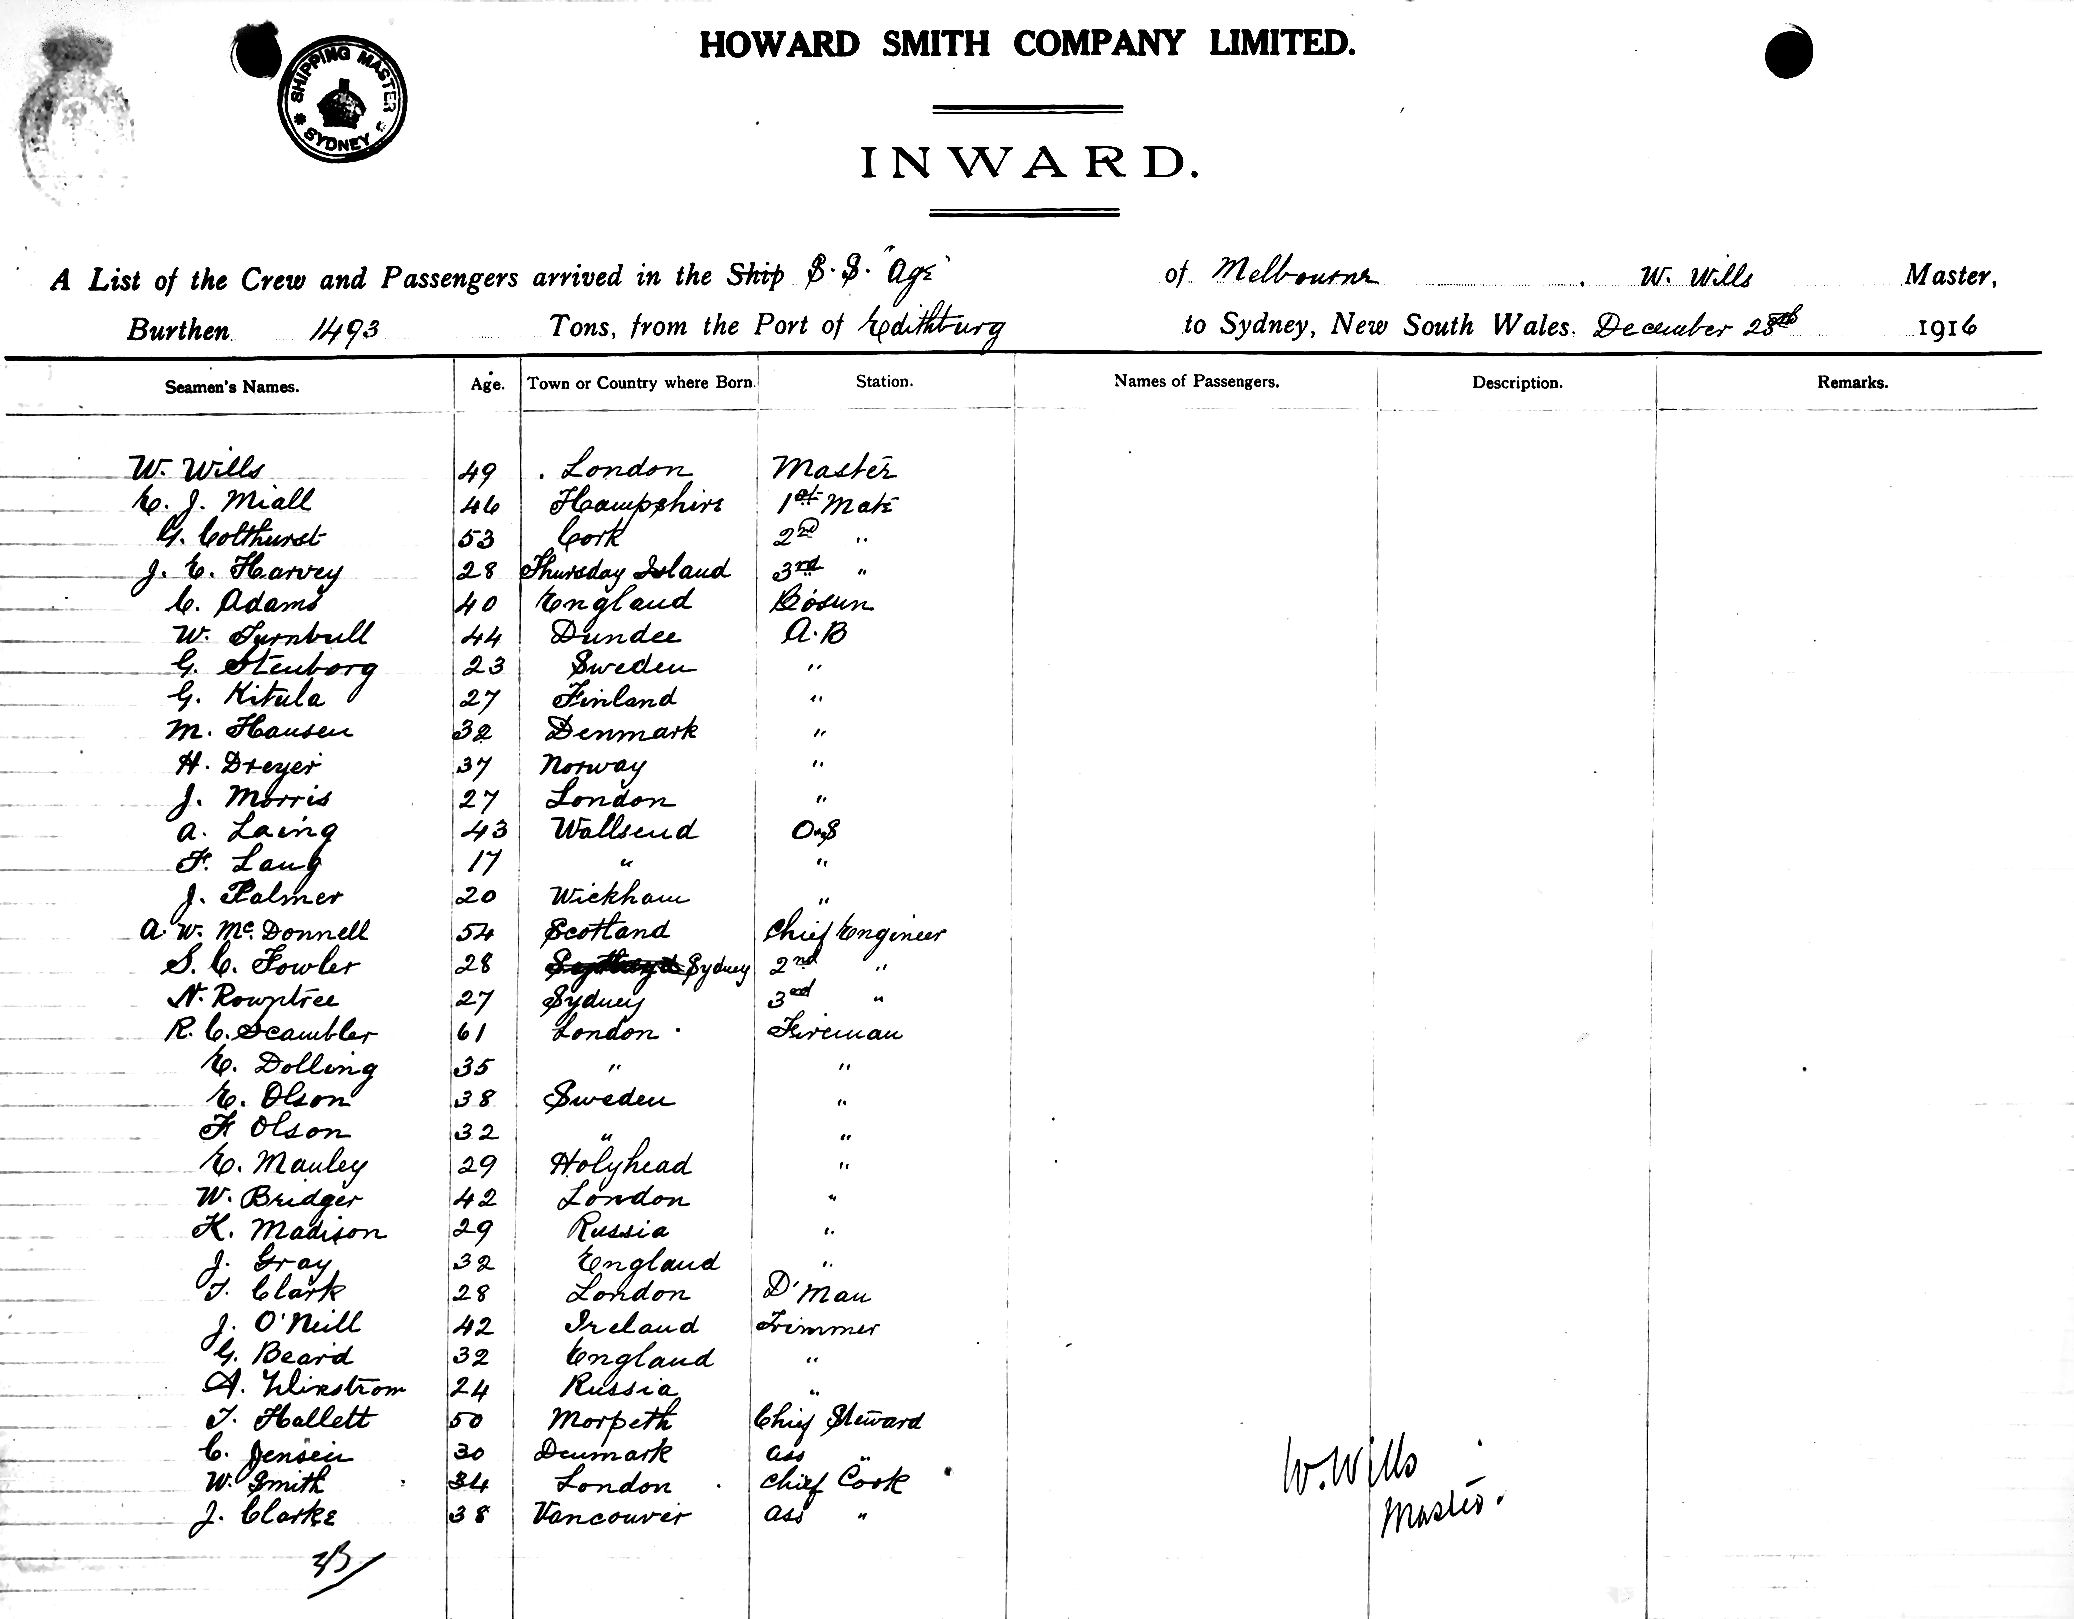 SHIPPING MASTER
SYDNEY
HOWARD SMITH COMPANY LIMITED.
INWARD.
A List of the Crew and Passengers arrived in the Ship S.S. "Age" of Melbourne . W. Wills Master,
Burthen 1493 Tons, from the Port of Edithburg to Sydney, New South Wales. December 28th 1916
Seamen's Names. Age. Town or Country where Born. Station. Names of Passengers. Description. Remarks.
W. Wills 49 London Master
E. J. Miall 46 Hampshire 1st Mate
G. Colthurst 53 Cork 2nd "
J. E. Harvey 28 Thursday Island 3rd "
C. Adams 40 England Bosun
W. Turnbull 44 Dundee A.B
G. Stenborg 23 Sweden "
G. Kitula 27 Finland "
M. Hansen 32 Denmark "
H. Dreyer 37 Norway "
J. Morris 27 London "
A. Laing 43 Wallsend O.S
F. Laug 17 " "
J. Palmer 20 Wickham "
A. W. McDonnell 54 Scotland Chief Engineer
S. C. Fowler 28 Sydney 2nd "
N. Rowntree 27 Sydney 3rd "
R. C. Scambler 61 London Fireman
E. Dolling 35 " "
E. Olson 38 Sweden "
F. Olson 32 " "
E. Manley 29 Holyhead "
W. Bridger 42 London "
K. Madison 29 Russia "
J. Gray 32 England "
T. Clark 28 London D'Man
J. O'Neill 42 Ireland Trimmer
G. Beard 32 England "
A. Wirstrom 24 Russia "
T. Hallett 50 Morpeth Chief Steward
C. Jensen 30 Denmark Ass "
W. Smith 34 London Chief Cook
J. Clarke 38 Vancouver Ass "
W. Wills
Master.